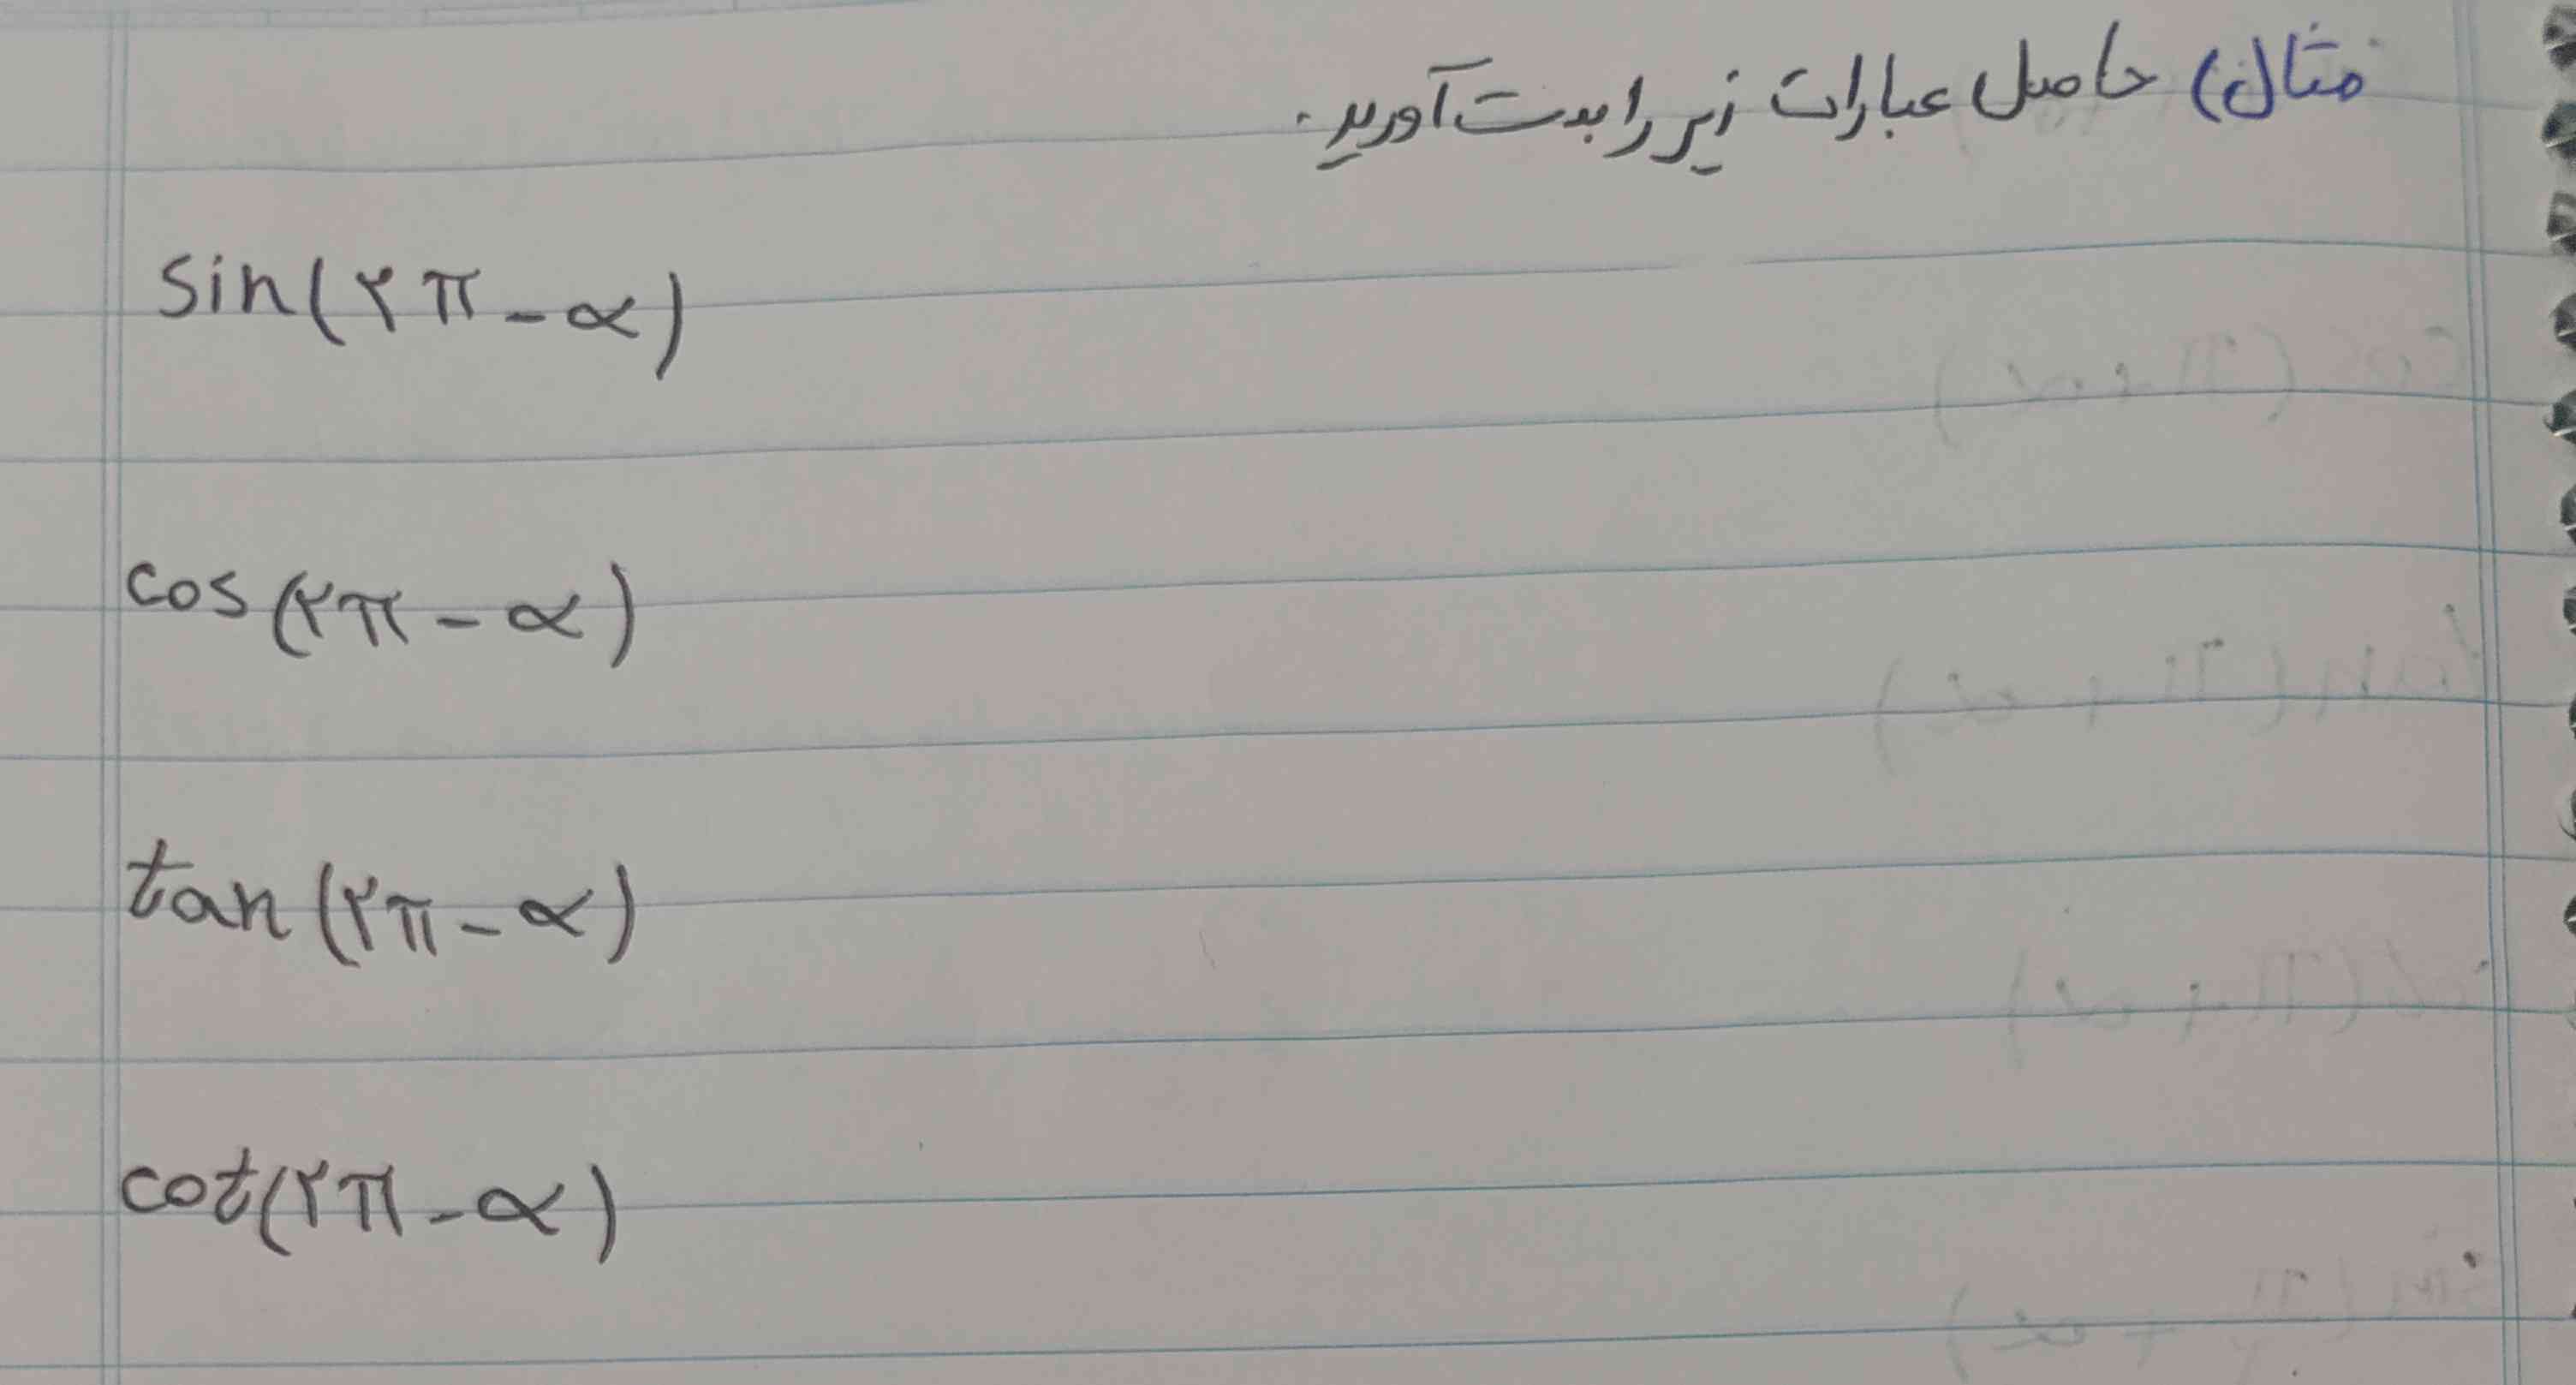 مثال) حاصل عبارات زیر را بدست آورید.
sin(۲π-α)
cos(۲π-α)
tan(۲π-α)
cot(۲π-α)